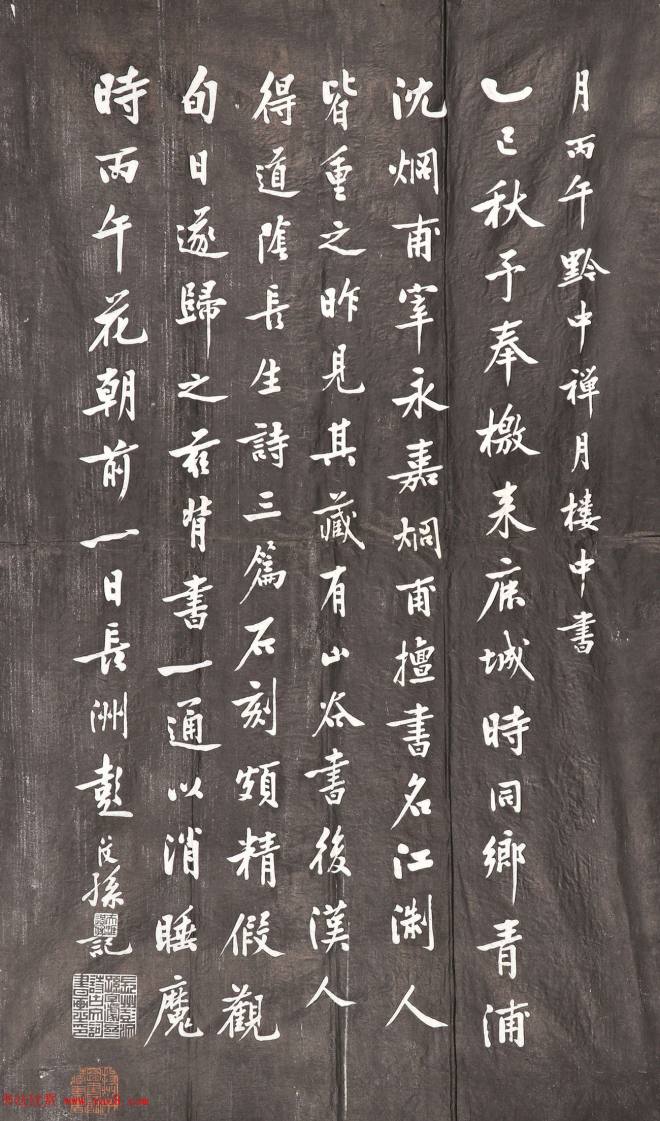 月丙午黔中禅月楼中書
乙巳秋予奉檄来庻城時同鄉青浦
沈烱甫宰永嘉烱甫擅書名江淛人
皆重之昨見其藏有山谷書後漢人
得道陰長生詩三篇石刻頗精假觀
旬日遂歸之茲背書一通以消睡魔
時丙午花朝前一日長洲彭 孫記
www.yac8.com